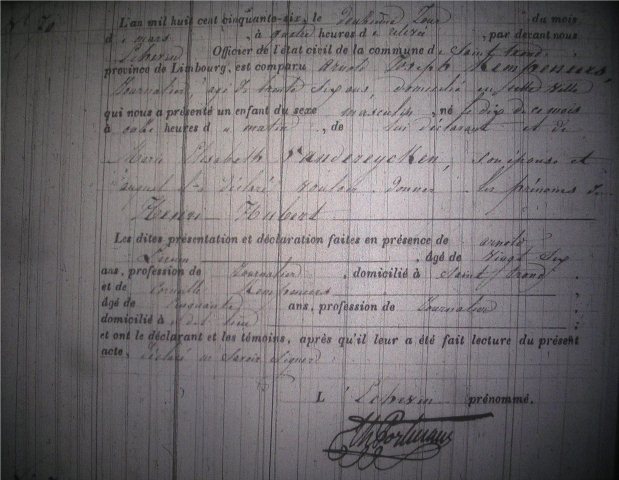 N° 70
L'an mil huit cent cinquante-six, le Jour du mois
d e mars, à quatre heures d e relevée, par devant nous
Echevin Officier de l'état civil de la commune d e Saint Trond
province de Limbourg, est comparu Arnold Joseph Kempeneers,
Journalier, agé de trente six ans, domicilié en cette ville
qui nous a présenté un enfant du sexe masculin, né le dix de ce mois
à onze heures d u matin, de lui déclarant et de
Marie Elisabeth Vandereycken, son épouse et
auquel il a déclaré vouloir donner les prénoms de
Henri Hubert
Les dites présentation et déclaration faites en présence de arnold
âgé de vingt six
ans, profession de Journalier, domicilié à Saint Trond,
et de Corneille Kempeneers
âgé de cinquante ans, profession de Journalier
domicilié à
et ont le déclarant et les témoins, après qu'il leur a été fait lecture du présent
acte, déclaré ne savoir signer
L' Echevin prénommé.